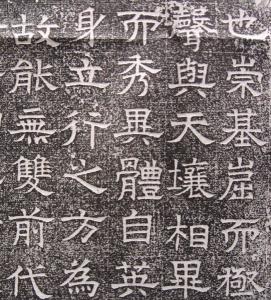 也崇基崫而極
聲與天壤相畢
而秀異體自英
身立行之方為
故能無雙前代